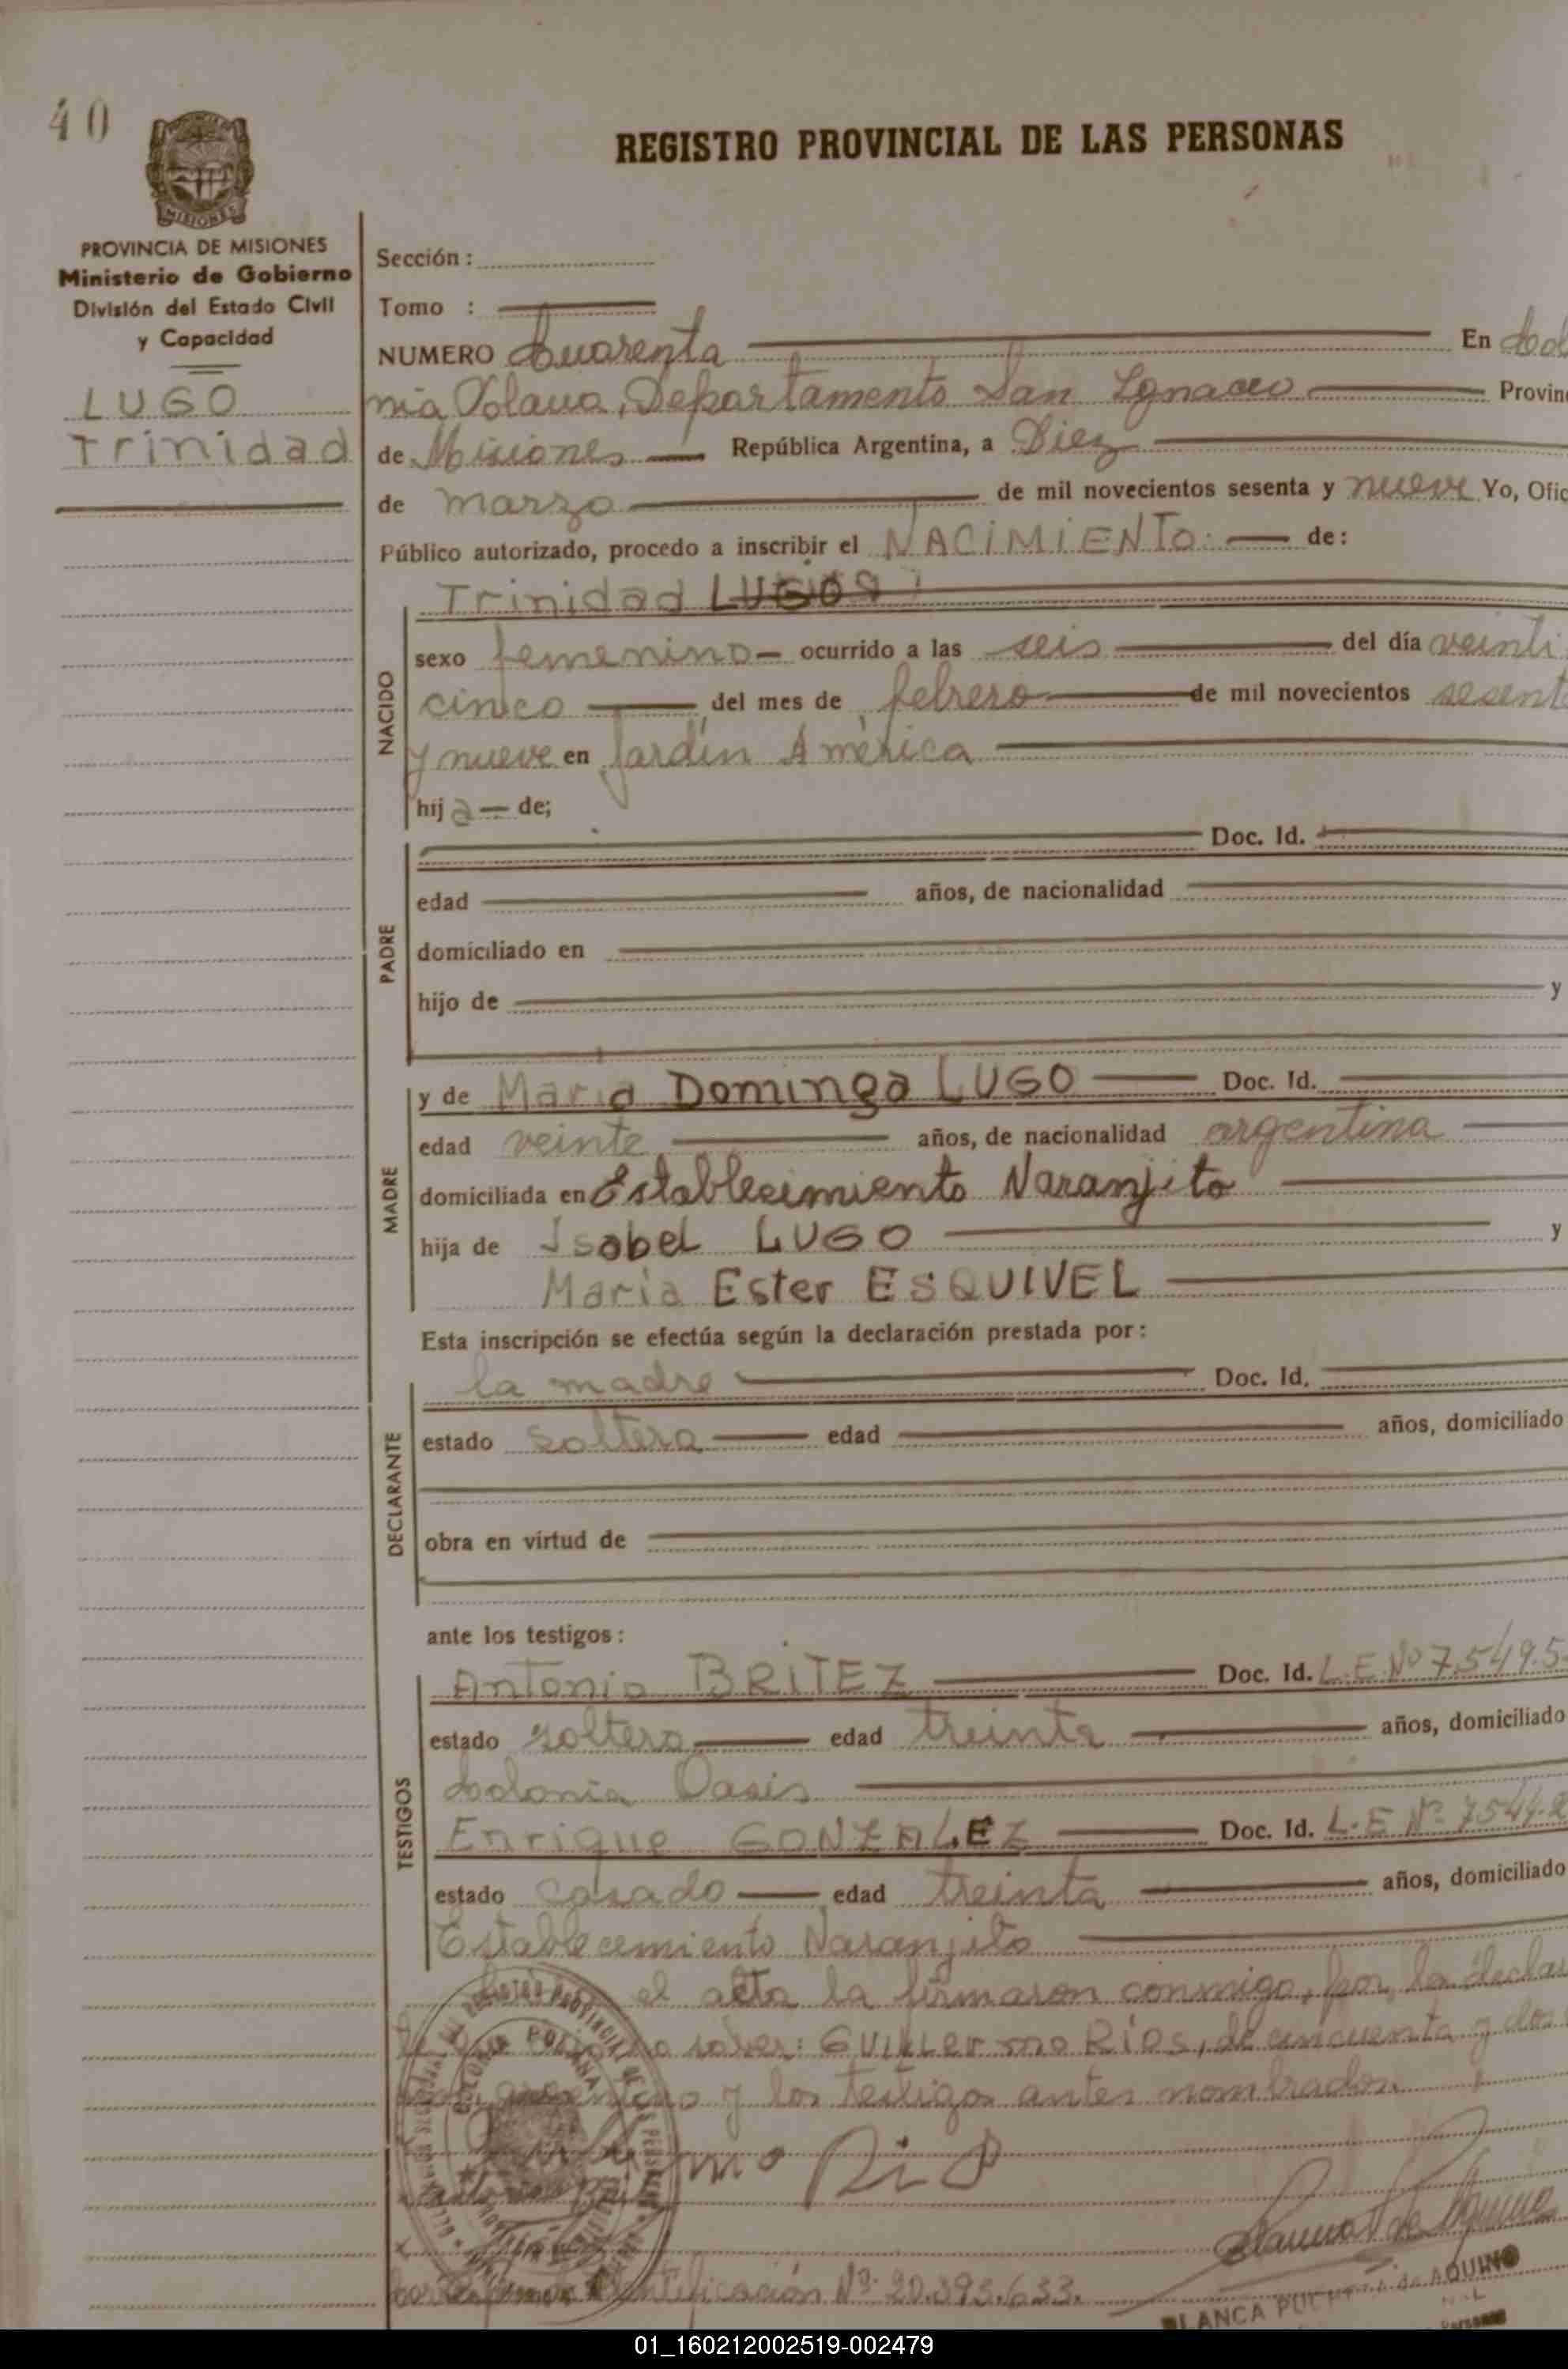 40
REGISTRO PROVINCIAL DE LAS PERSONAS
MISIONES
PROVINCIA DE MISIONES
Ministerio de Gobierno
División del Estado Civil
y Capacidad
LUGO
Trinidad
Sección :
Tomo :
NUMERO Cuarenta En Colo
nia Polana, Departamento San Ignacio Provin
de Misiones República Argentina, a Diez
de marzo de mil novecientos sesenta y nueve Yo, Ofic
Público autorizado, procedo a inscribir el NACIMIENTO de:
NACIDO
Trinidad LUGO
sexo femenino ocurrido a las seis del día veinti
cinco del mes de febrero de mil novecientos sesent
y nueve en Jardín América
hij a de;
PADRE
Doc. Id.
edad años, de nacionalidad
domiciliado en
hijo de y
MADRE
y de Maria Dominga LUGO Doc. Id.
edad veinte años, de nacionalidad argentina
domiciliada en Establecimiento Naranjito
hija de Isabel LUGO y
María Ester ESQUIVEL
Esta inscripción se efectúa según la declaración prestada por:
DECLARANTE
la madre Doc. Id.
estado soltera edad años, domiciliado
obra en virtud de
ante los testigos:
TESTIGOS
Antonio BRITEZ Doc. Id. L.E Nº 7.549.5
estado soltero edad treinta años, domiciliado
Colonia Oasis
Enrique GONZALEZ Doc. Id. L.E Nº 7544.2
estado casado edad treinta años, domiciliado
Establecimiento Naranjito
el acta la firmaron conmigo, por la decla
no saber: GUILLermo RÍOS, de cincuenta y dos
y los testigos antes nombrados
Rios
Identificación Nº 20.393.633.
BLANCA de AQUINO
01_160212002519-002479